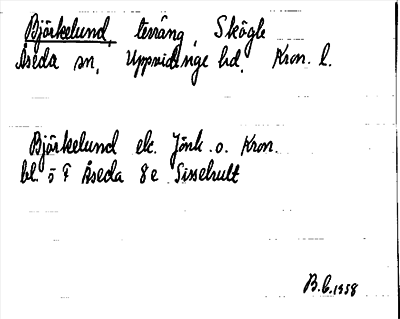 Björkelund, terräng, Skögle
Åseda sn, Uppvidinge hd. Kron. l.
Björkelund ek. Jönk. o. Kron.
bl. ö F Åseda 8 e Sisselhult
B.C. 1958